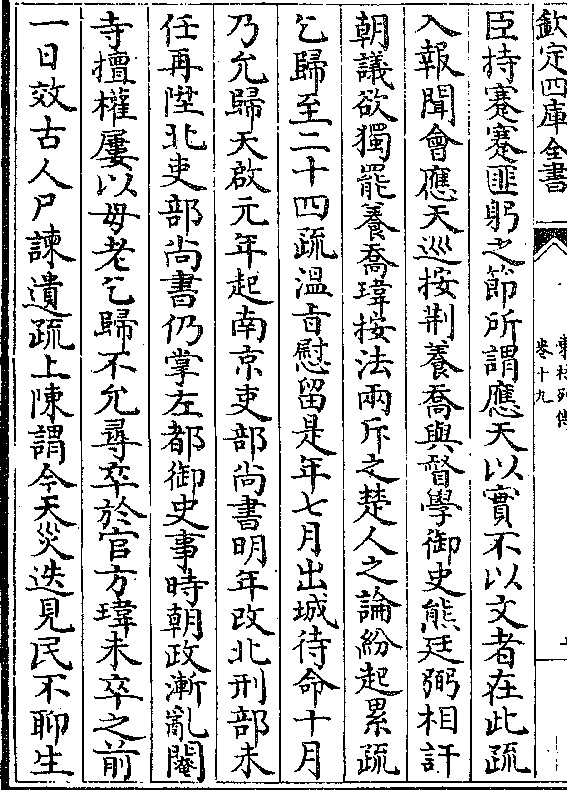 欽定四庫全書
東林列傳
卷十九
臣持蹇蹇匪躬之節所謂應天以實不以文者在此疏
入報聞會應天巡按荆養喬與督學御史熊廷弼相訐
朝議欲獨罷養喬瑋按法兩斥之楚人之論紛起累疏
乞歸至二十四疏溫旨慰留是年七月出城待命十月
乃允歸天啟元年起南京吏部尚書明年改北刑部未
任再陞北吏部尚書仍掌左都御史事時朝政漸亂閹
寺擅權屢以母老乞歸不允尋卒於官方瑋未卒之前
一日效古人尸諫遺疏上陳謂今天災迭見民不聊生